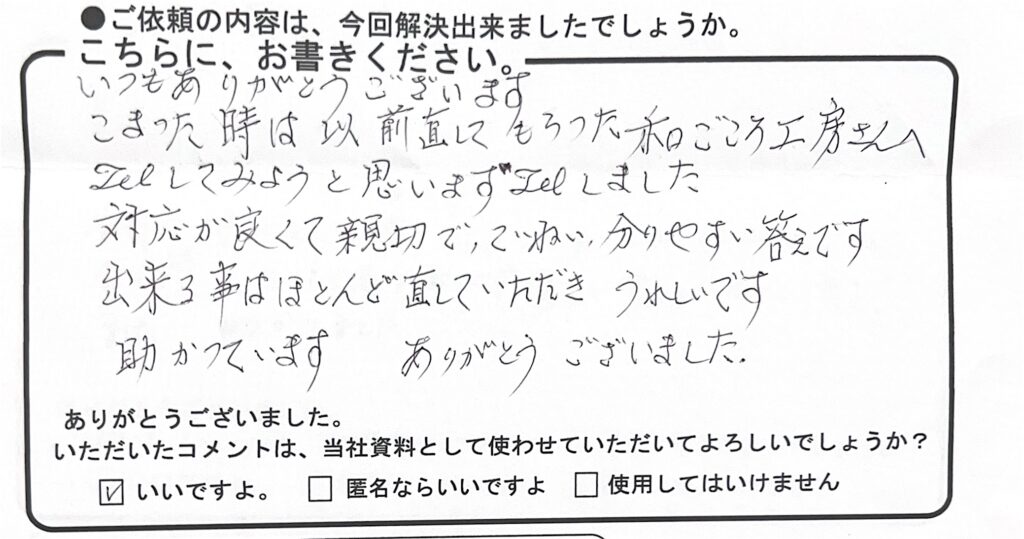 ●ご依頼の内容は、今回解決出来ましたでしょうか。
こちらに、お書きください。
いつもありがとうございます
こまった時は以前直してもらった和ごころ工房さんへ
Telしてみようと思います Telしました
対応が良くて親切で、ていねい、分りやすい答えです
出来る事はほとんど直していただき うれしいです
助かっています ありがとうございました.
ありがとうございました。
いただいたコメントは、当社資料として使わせていただいてよろしいでしょうか？
☑ いいですよ。 □ 匿名ならいいですよ □ 使用してはいけません